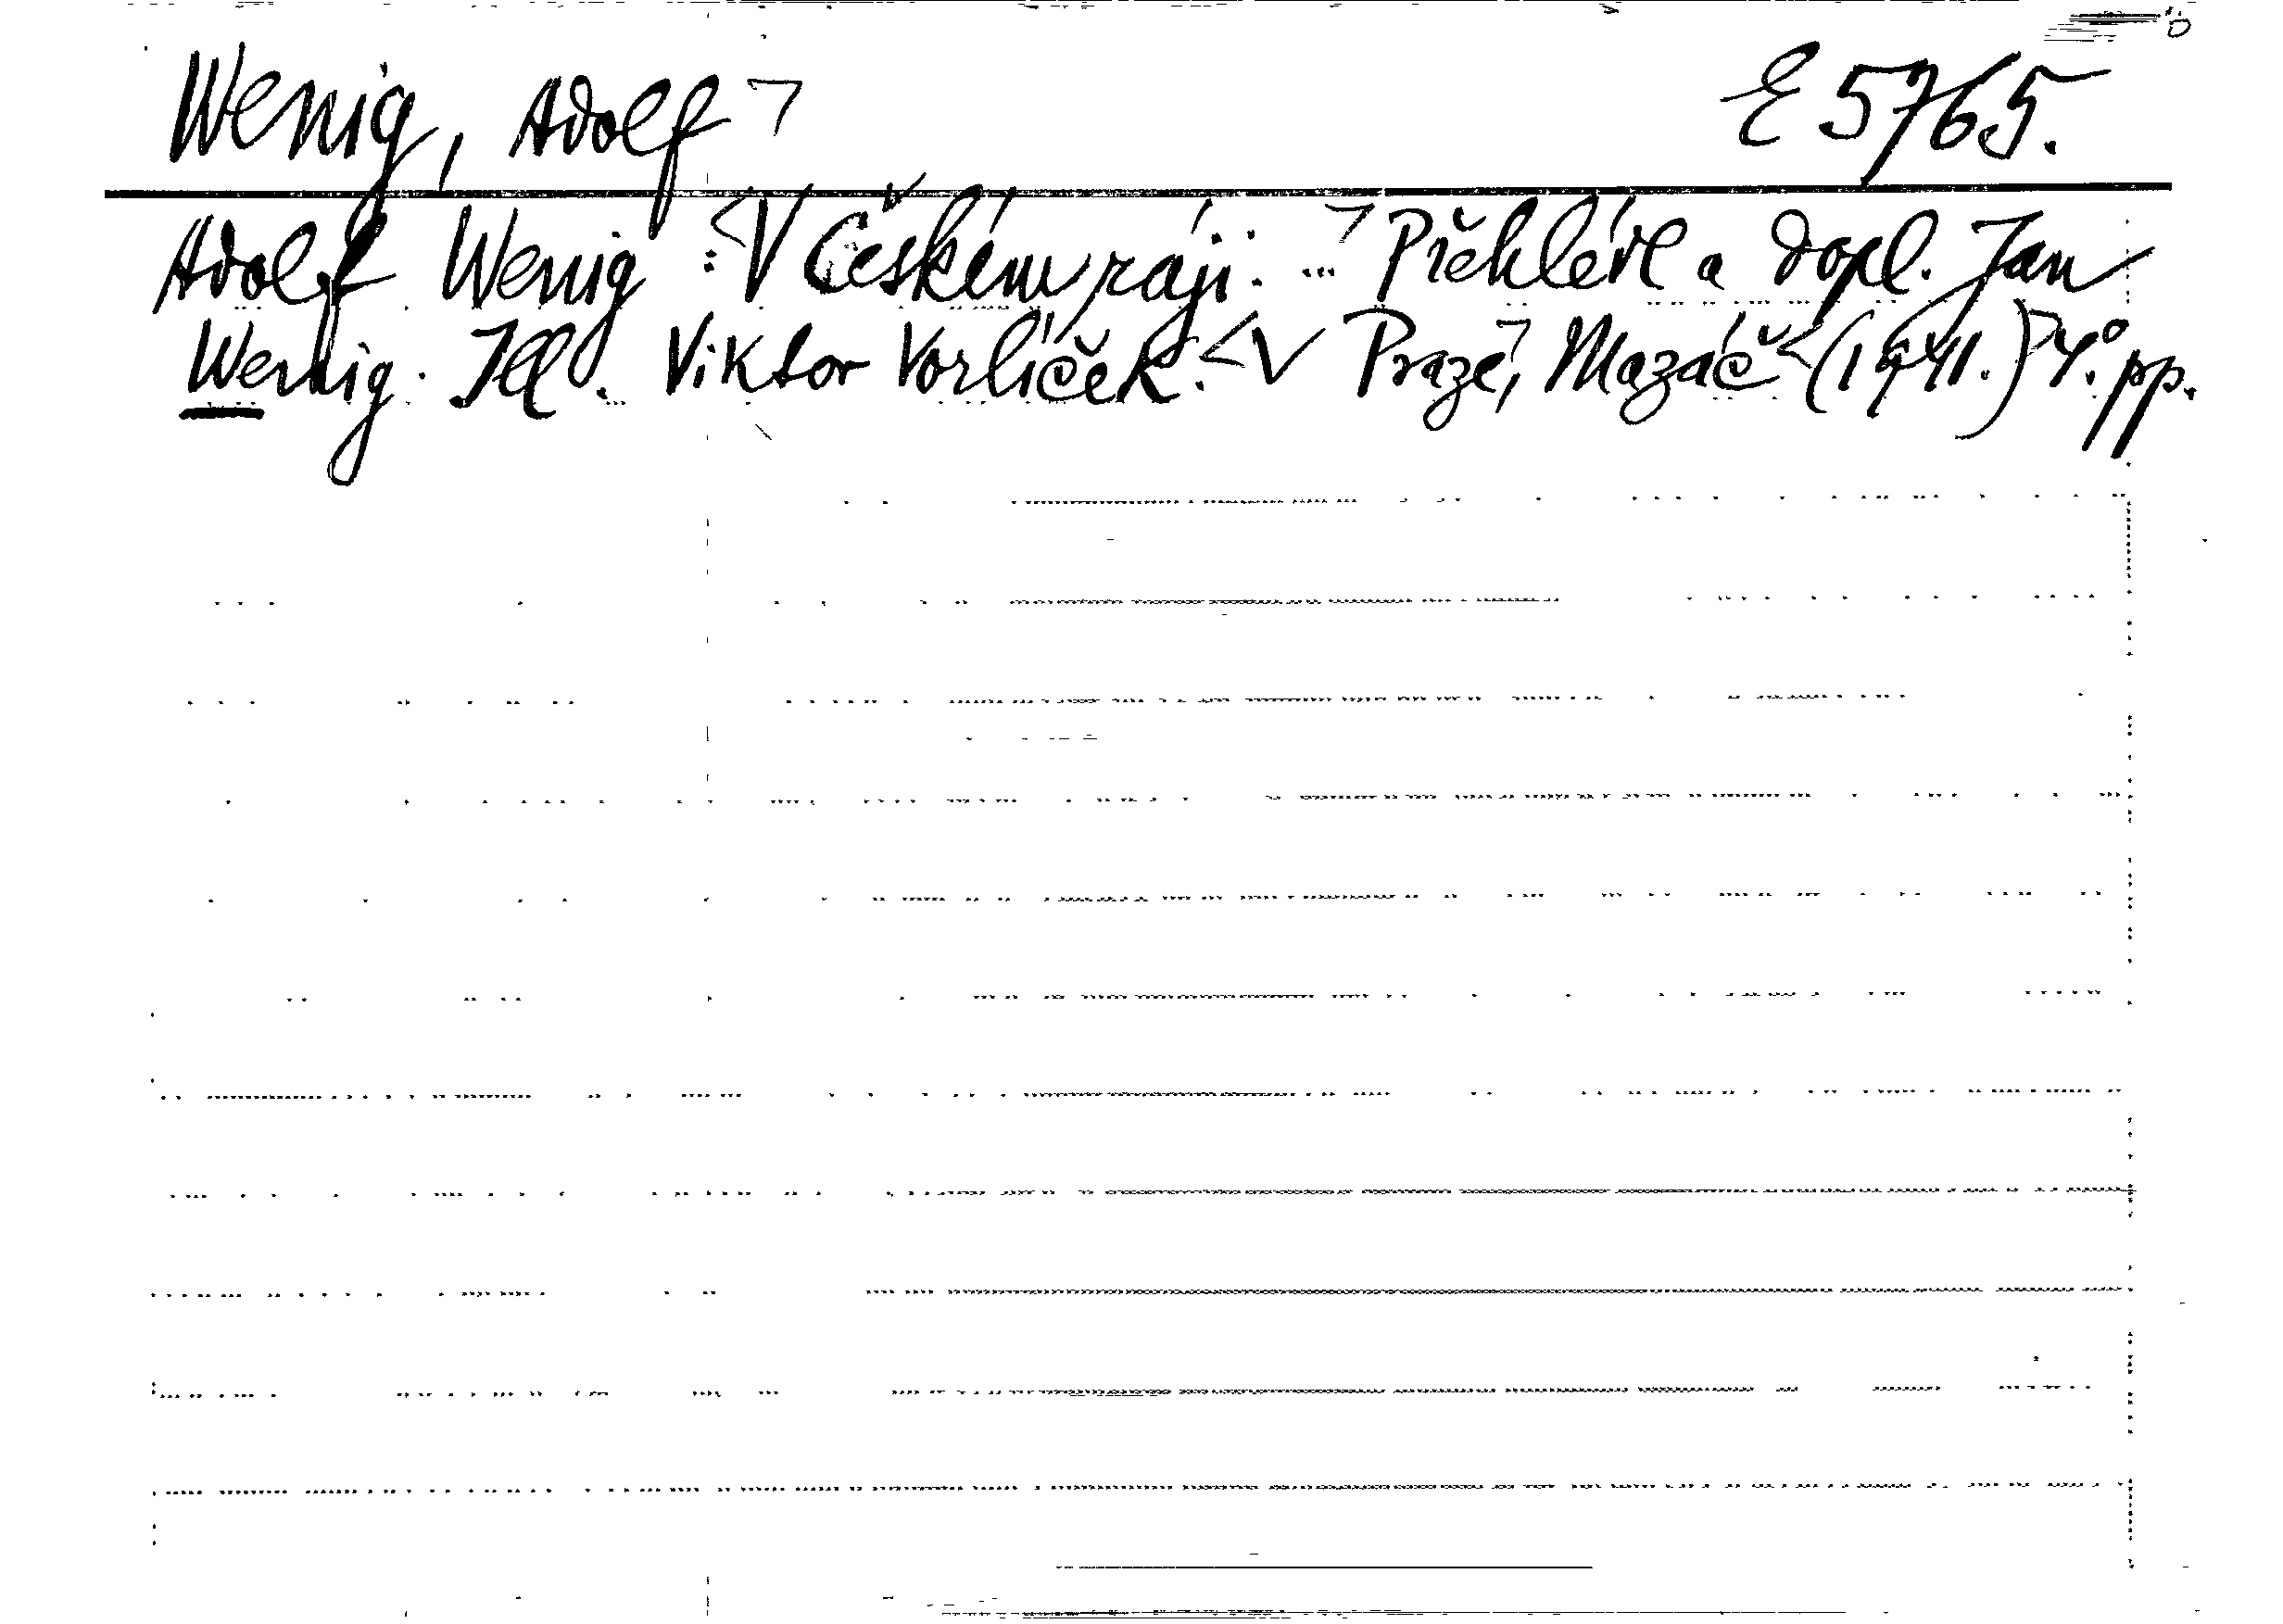 Wenig, Adolf ¬ E 5765.
Adolf Wenig: <V Českém ráji. ... ¬ Přehlédl a dopl. Jan
Wenig. Ill. Viktor Vorlíček. <V Praze ¬, Mazáč <(1941.)> 4.° pp.